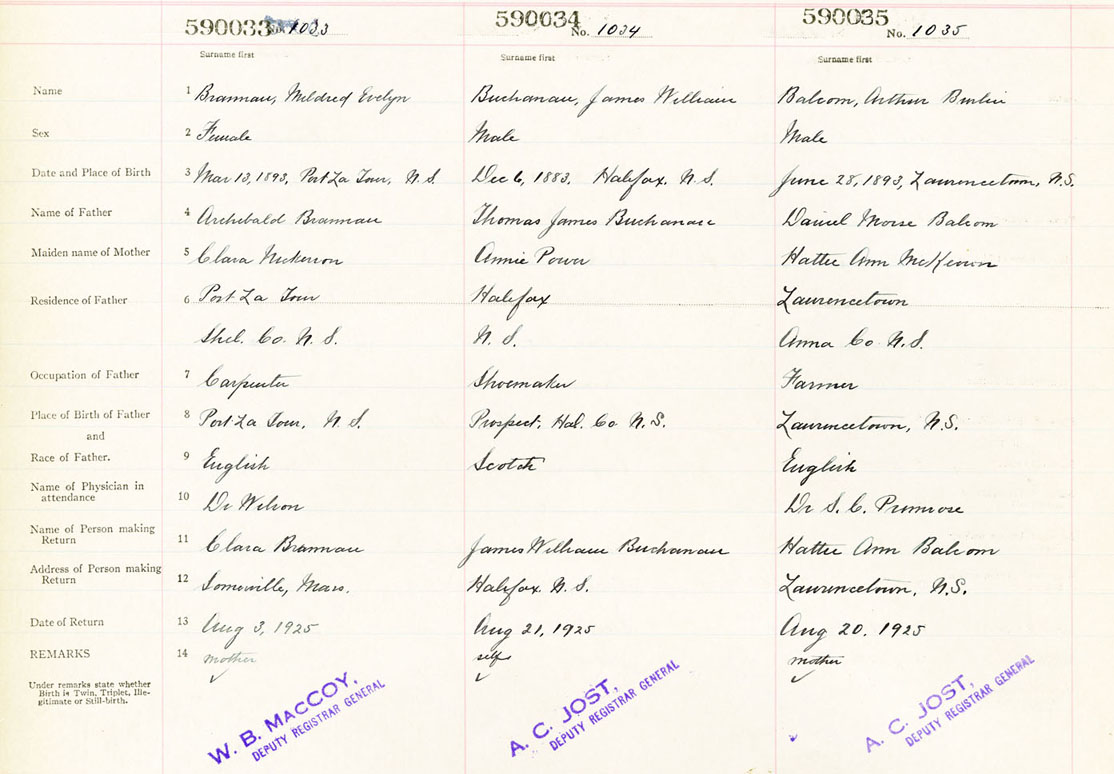 590033 No. 1033
590034 No. 1034
590035 No. 1035
Surname first
Surname first
Surname first
Name 1 Brannan, Mildred Evelyn Buchanan, James William Balcom, Arthur Burlin
Sex 2 Female Male Male
Date and Place of Birth 3 Mar 13, 1893, Port La Tour, N.S. Dec 6, 1883. Halifax. N.S. June 28, 1893, Lawrencetown, N.S.
Name of Father 4 Archibald Brannan Thomas James Buchanan Daniel Morse Balcom
Maiden name of Mother 5 Clara Nickerson Annie Power Hattie Ann McKeown
Residence of Father 6 Port La Tour Halifax Lawrencetown
Shel. Co. N.S. N.S. Anna Co N.S.
Occupation of Father 7 Carpenter Shoemaker Farmer
Place of Birth of Father 8 Port La Tour, N.S. Prospect, Hal. Co N.S. Lawrencetown, N.S.
and
Race of Father. 9 English Scotch English
Name of Physician in
attendance 10 Dr Wilson Dr S. C. Primrose
Name of Person making
Return 11 Clara Brannan James William Buchanan Hattie Ann Balcom
Address of Person making
Return 12 Somerville, Mass. Halifax N.S. Lawrencetown, N.S.
Date of Return 13 Aug 3, 1925 Aug 21, 1925 Aug 20. 1925
REMARKS 14 mother self mother
Under remarks state whether
Birth is Twin, Triplet, Ille-
gitimate or Still-birth.
W. B. MacCOY,
DEPUTY REGISTRAR GENERAL
A. C. JOST,
DEPUTY REGISTRAR GENERAL
A. C. JOST,
DEPUTY REGISTRAR GENERAL